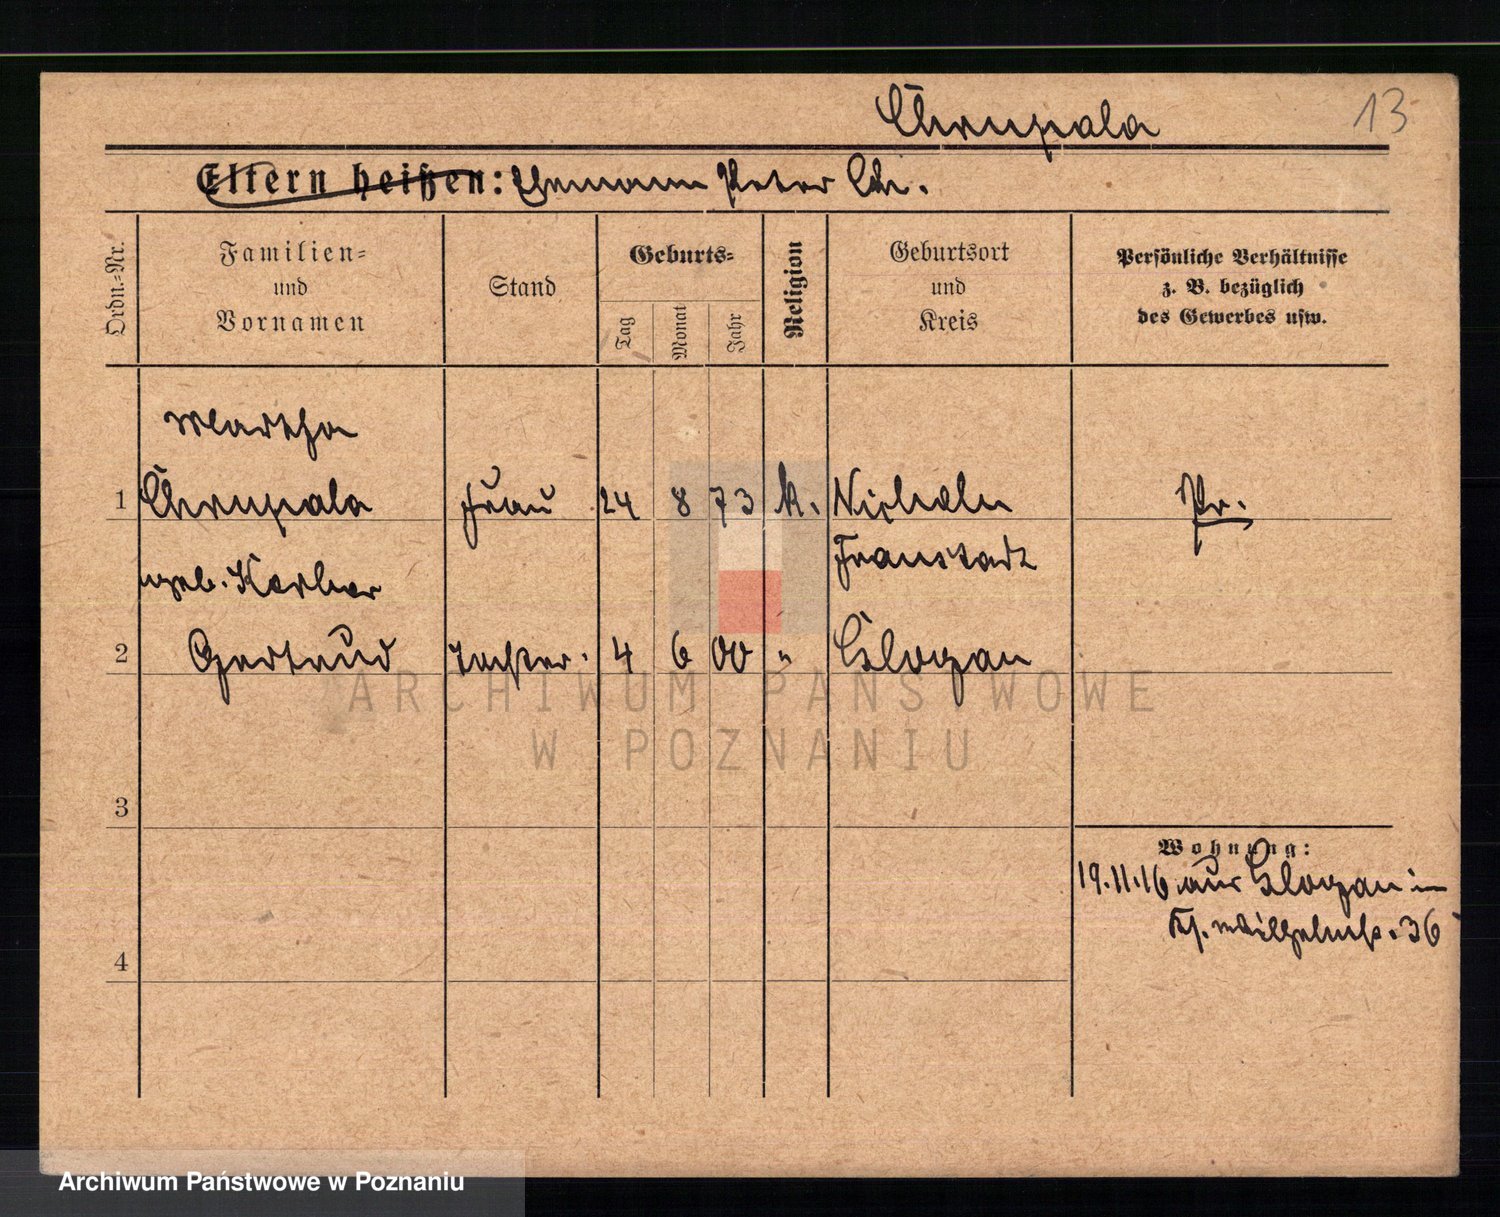 Chrupala 13
Eltern heißen: Ehemann Peter Ch.
Ordn.-Nr.
Familien-
und
Vornamen
Stand
Geburts-
Tag
Monat
Jahr
Religion
Geburtsort
und
Kreis
Persönliche Verhältnisse
z. B. bezüglich
des Gewerbes usw.
Martha
1 Chrupala Frau 24 8 73 k. Pr.
Fraustadt
geb.
2 Gertrud Tochter. 4 6 00 " Glogau
ARCHIWUM PAŃSTWOWE
W POZNANIU
3
Wohnung:
19.11.16 aus Glogau in
Wilhelmstr. 36
4
Archiwum Państwowe w Poznaniu